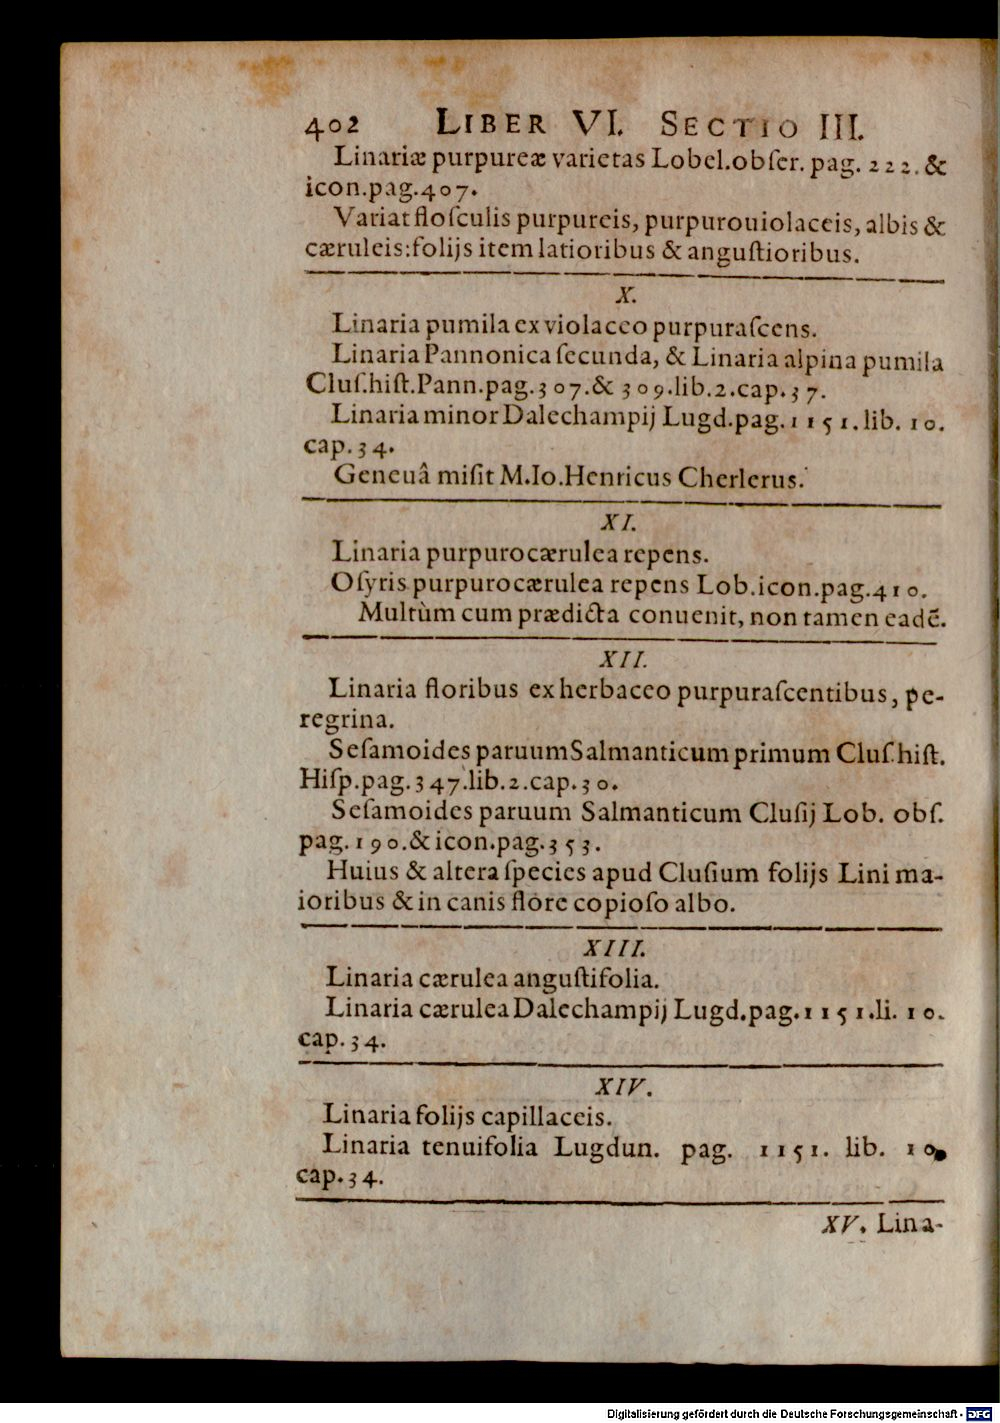 402 LIBER VI. SECTIO III.
Linariæ purpureæ varietas Lobel.obſer. pag. 222. &
icon.pag.407.
Variat floſculis purpureis, purpurouiolaceis, albis &
cæruleis:folijs item latioribus & anguſtioribus.
X.
Linaria pumila ex violaceo purpuraſcens.
Linaria Pannonica ſecunda, & Linaria alpina pumila
Cluſ.hiſt.Pann.pag.307.& 309.lib.2.cap.37.
Linaria minor Dalechampij Lugd.pag.1151.lib. 10.
cap.34.
Geneuâ miſit M.Io.Henricus Cherlerus.
XI.
Linaria purpurocærulea repens.
Oſyris purpurocærulea repens Lob.icon.pag.410.
Multùm cum prædicta conuenit, non tamen eadē.
XII.
Linaria floribus ex herbaceo purpuraſcentibus, pe-
regrina.
Seſamoides paruum Salmanticum primum Cluſ.hiſt.
Hiſp.pag.347.lib.2.cap.30.
Seſamoides paruum Salmanticum Cluſij Lob. obſ.
pag.190.& icon.pag.353.
Huius & altera ſpecies apud Cluſium folijs Lini ma-
ioribus & in canis flore copioſo albo.
XIII.
Linaria cærulea anguſtifolia.
Linaria cærulea Dalechampij Lugd.pag.1151.li. 10.
cap.34.
XIV.
Linaria folijs capillaceis.
Linaria tenuifolia Lugdun. pag. 1151. lib. 10.
cap.34.
XV. Lina-
Digitalisierung gefördert durch die Deutsche Forschungsgemeinschaft - DFG